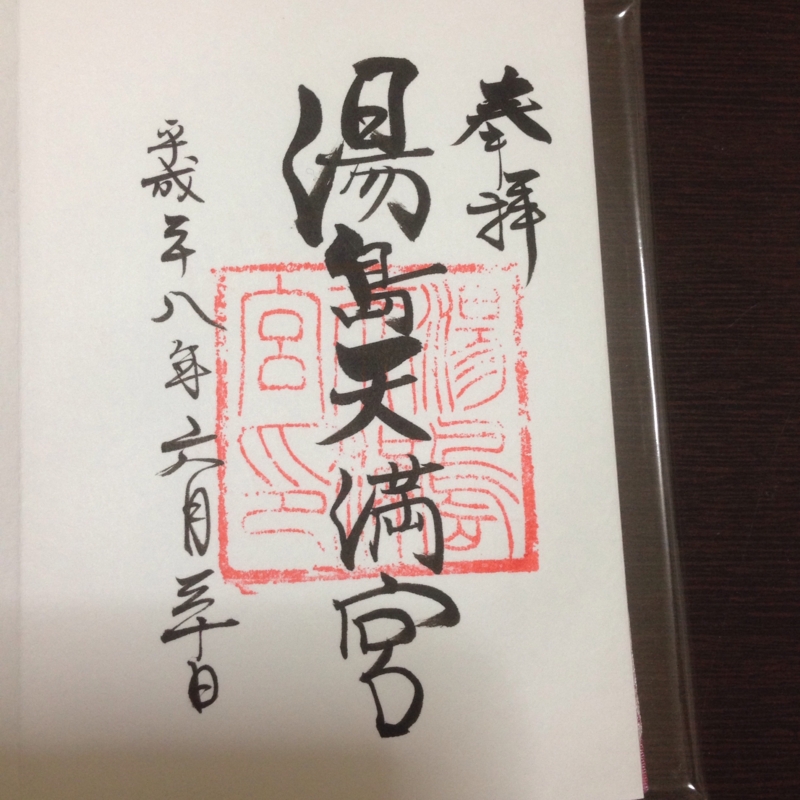 奉拝
湯島天満宮
平成二十八年六月三十日
湯島
天満
宮印